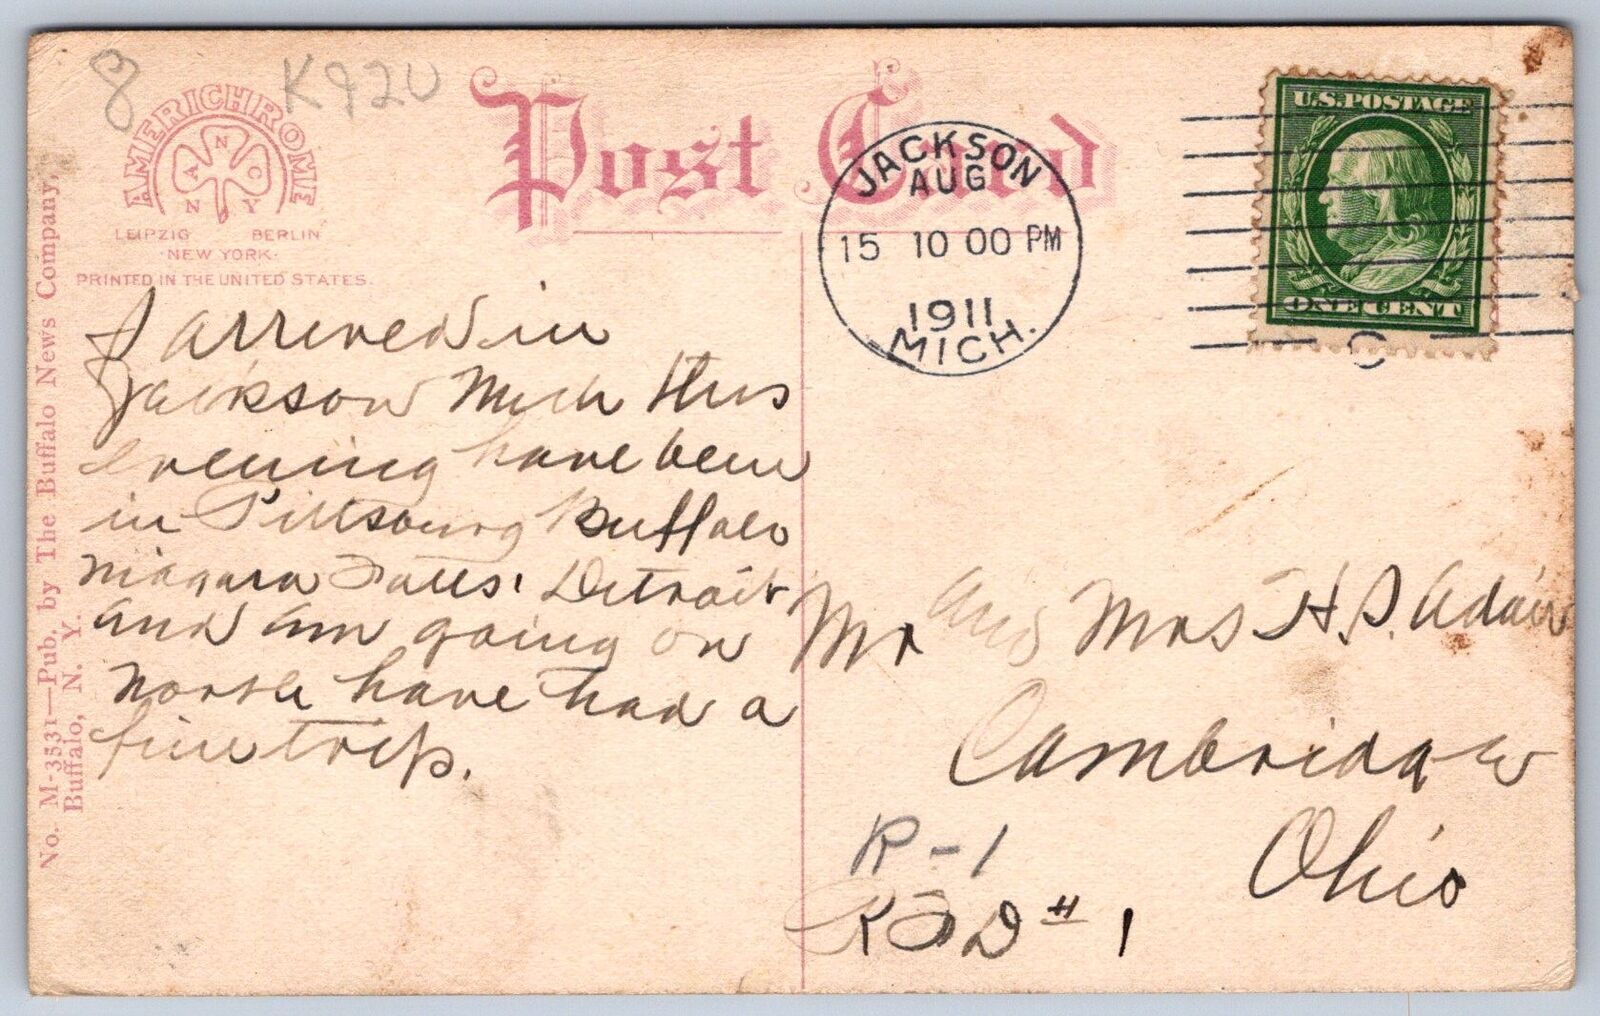 8
K920
AMERICHROME
A N C
N Y
LEIPZIG BERLIN
·NEW YORK·
PRINTED IN THE UNITED STATES.
Post Card
JACKSON
AUG
15 10 00 PM
1911
MICH.
U.S. POSTAGE
ONE CENT
No. M-3531—Pub. by The Buffalo News Company,
Buffalo, N. Y.
I arrived in
Jackson Mich this
evening have been
in Pittsburg Buffalo
Niagara Falls. Detroit
and am going on
North have had a
fine trip.
Mr and Mrs H. S. Adair
Cambridge
Ohio
R-1
RFD # 1